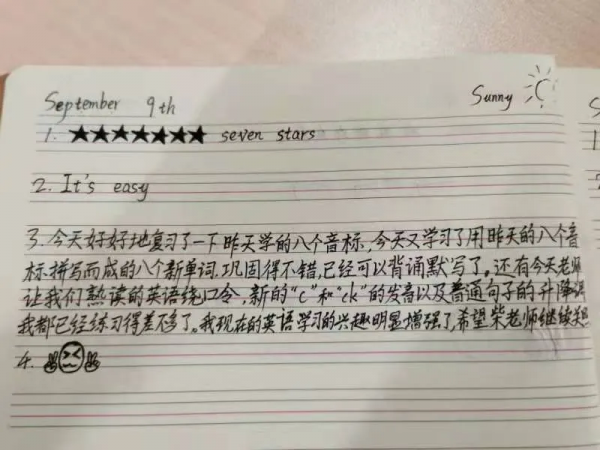 September 9th Sunny
1. ★★★★★★★ seven stars
2. It's easy
3. 今天好好地复习了一下昨天学的八个音标,今天又学习了用昨天的八个音
标拼写而成的八个新单词,巩固得不错,已经可以背诵默写了。还有今天老师
让我们熟读的英语绕口令,新的"c"和"ck"的发音以及普通句子的升降调
我都已经练习得差不多了。我现在的英语学习的兴趣明显增强了,希望柴老师继续
4.